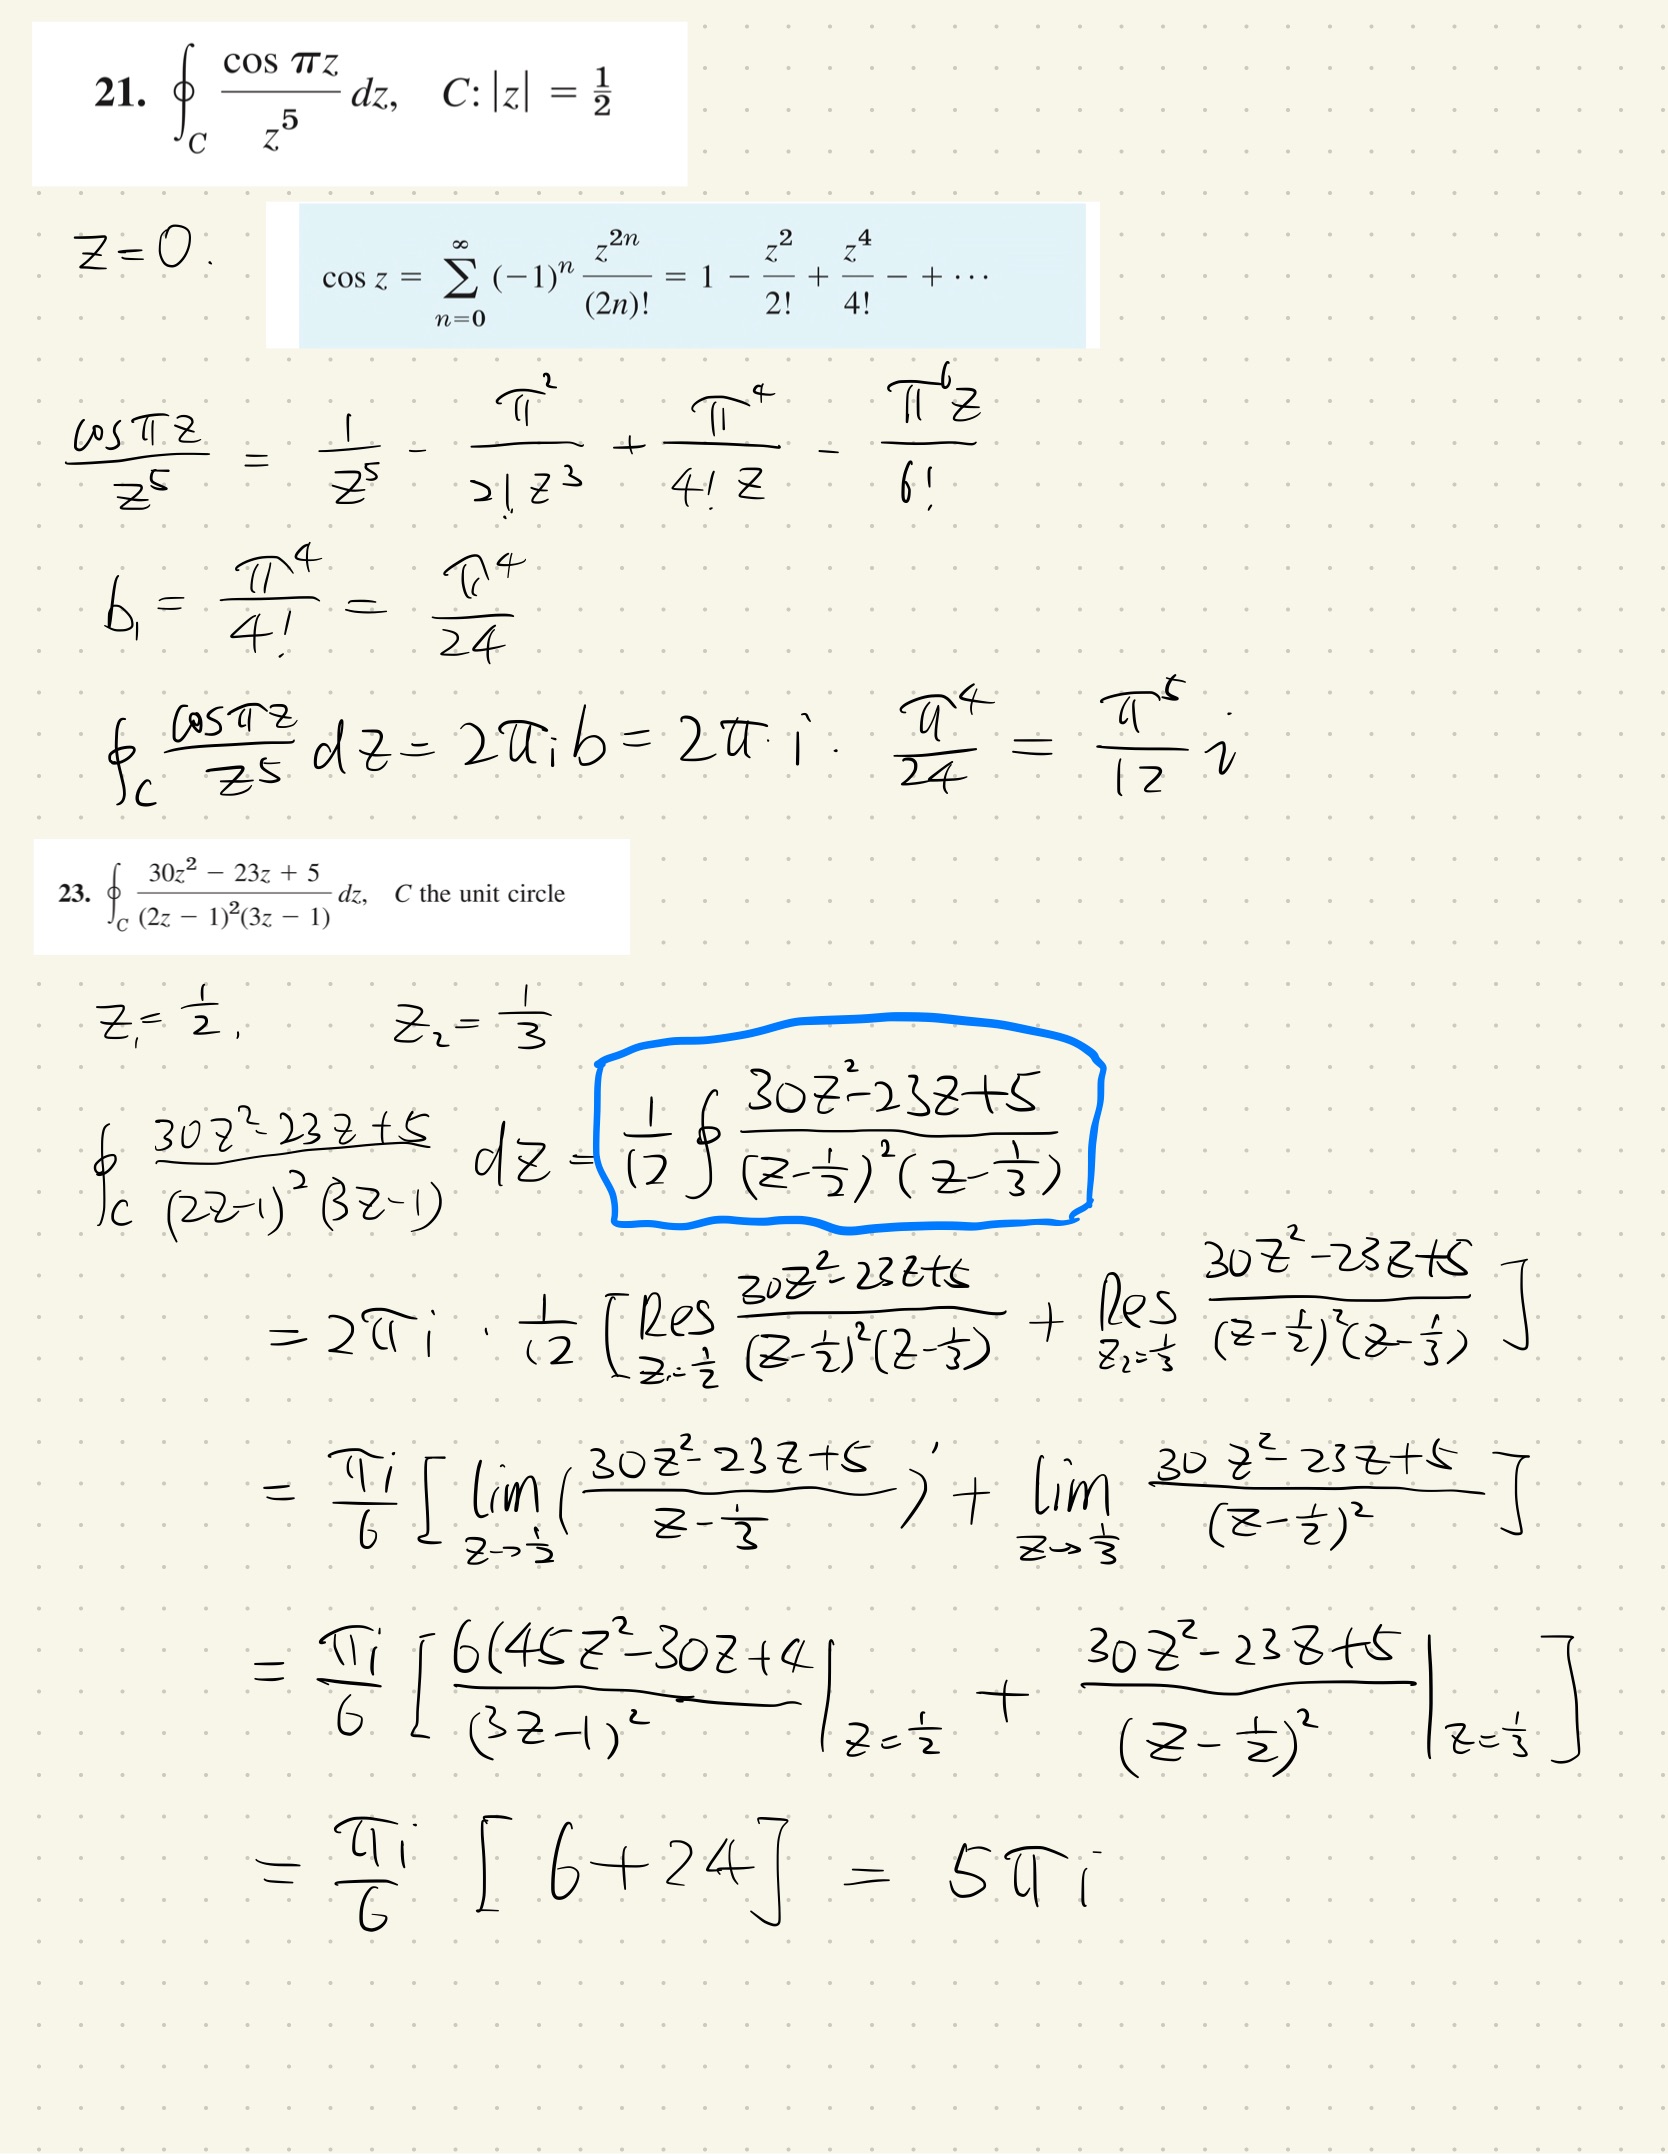 21. ∮_C cos πz / z^5 dz, C: |z| = 1/2
z=0.
cos z = ∑_{n=0}^{∞} (−1)^n z^{2n} / (2n)! = 1 − z^2/2! + z^4/4! − + ···
cosπz / z^5 = 1/z^5 - π^2 / 2! z^3 + π^4 / 4! z - π^6 z / 6!
b_1 = π^4 / 4! = π^4 / 24
∮_C cosπz / z^5 dz = 2πi b = 2π·i · π^4 / 24 = π^5 / 12 i
23. ∮_C (30z^2 − 23z + 5) / ((2z − 1)^2(3z − 1)) dz, C the unit circle
z_1 = 1/2, z_2 = 1/3
∮_C (30z^2-23z+5) / ((2z-1)^2 (3z-1)) dz = 1/12 ∮ (30z^2-23z+5) / ((z-1/2)^2 (z-1/3))
= 2πi · 1/12 [ Res_{z_1=1/2} (30z^2-23z+5) / ((z-1/2)^2 (z-1/3)) + Res_{z_2=1/3} (30z^2-23z+5) / ((z-1/2)^2 (z-1/3)) ]
= πi/6 [ lim_{z→1/2} ( (30z^2-23z+5) / (z-1/3) )' + lim_{z→1/3} (30z^2-23z+5) / (z-1/2)^2 ]
= πi/6 [ 6(45z^2-30z+4 / (3z-1)^2 |_{z=1/2} + (30z^2-23z+5) / (z-1/2)^2 |_{z=1/3} ]
= πi/6 [ 6+24 ] = 5πi